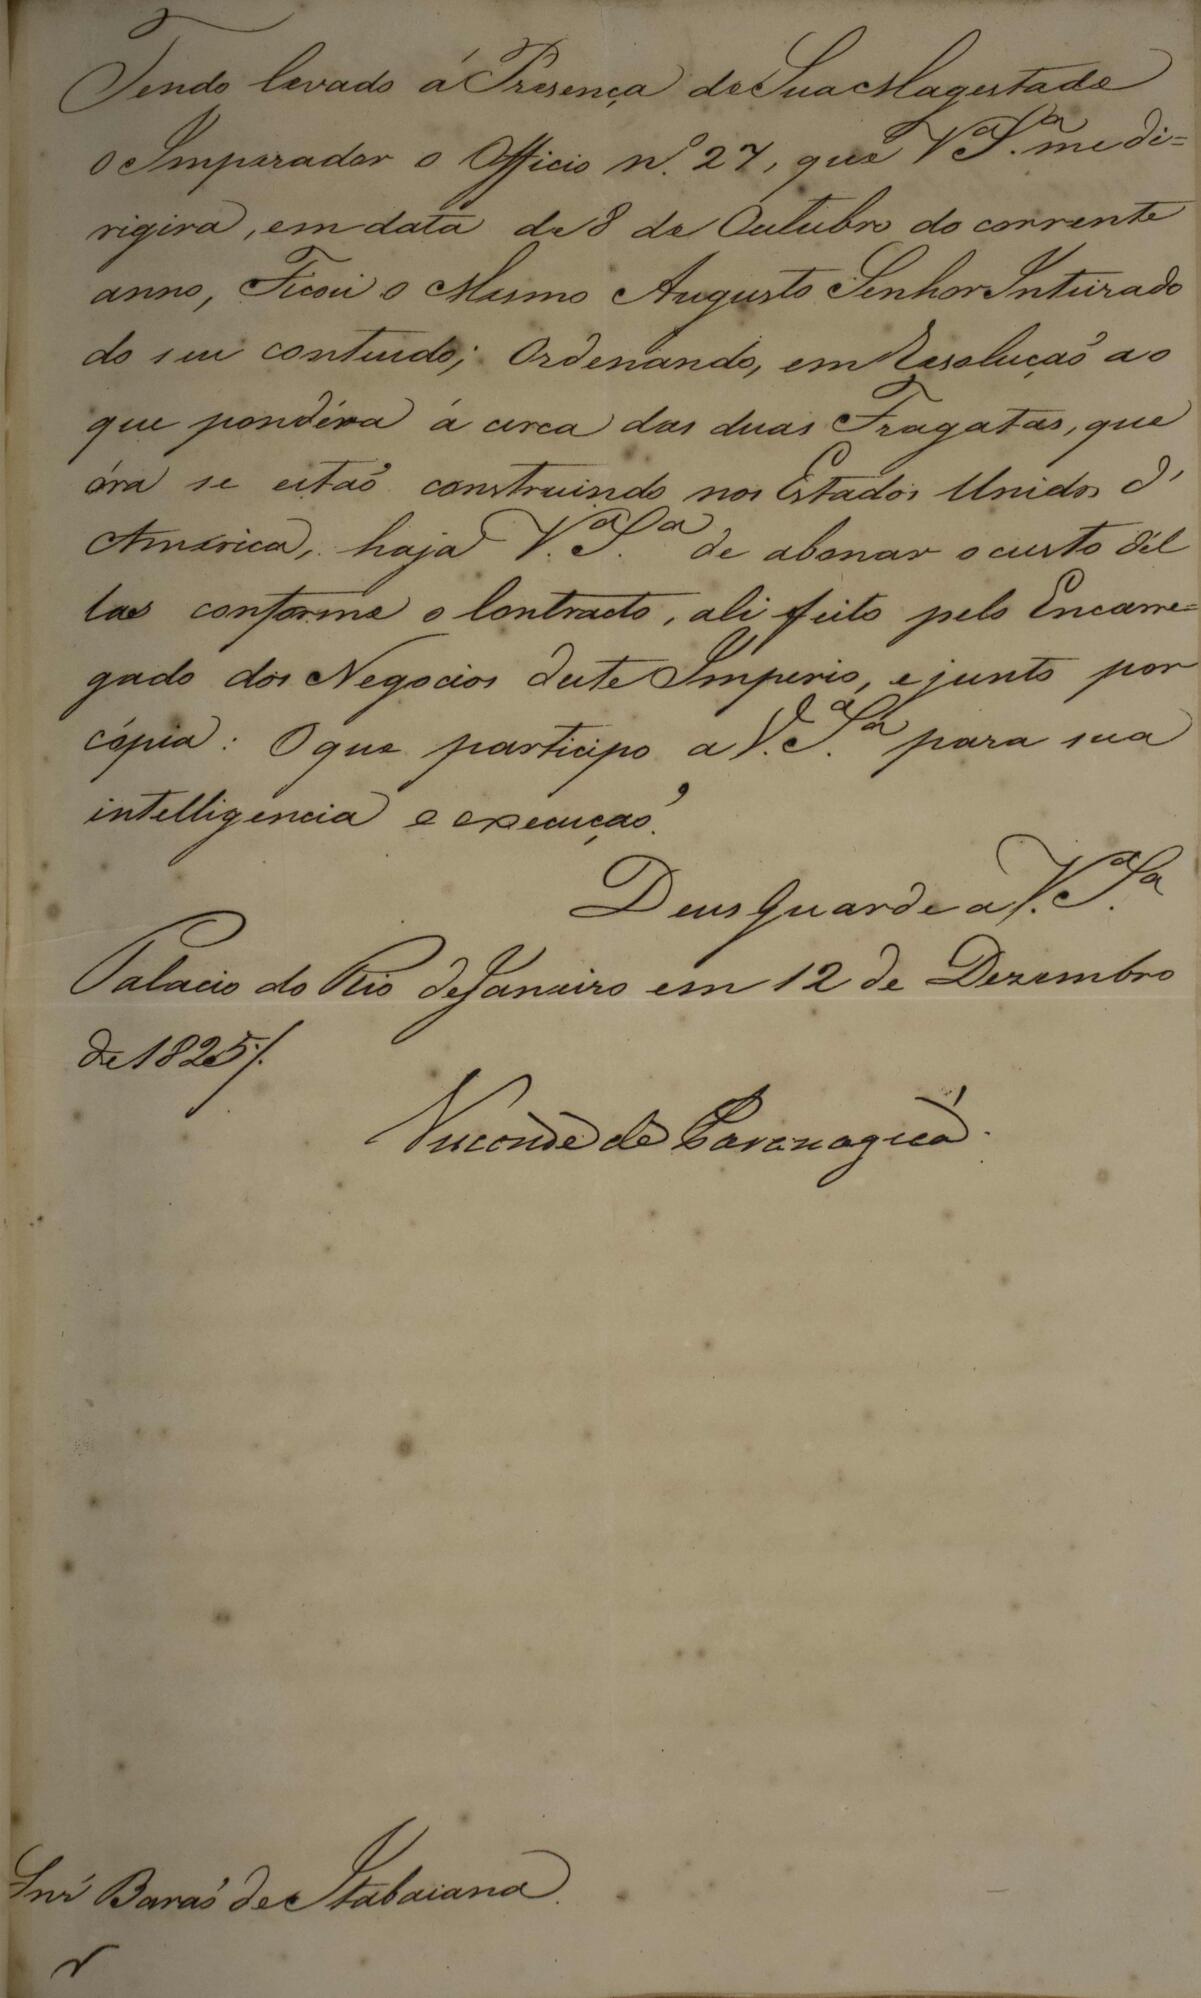 Tendo levado á Presença de Sua Magestade
o Imperador o Officio n.º 27, que V.ª S.ª me di=
rigira, em data de 8 de Outubro do corrente
anno, Ficou o Mesmo Augusto Senhor Inteirado
do seu conteudo; Ordenando, em Resoluçaõ ao
que pondéra á cerca das duas Fragatas, que
óra se estaõ construindo nos Estados Unidos d'
America, haja V.ª S.ª de abonar o custo d'el
las conforme o Contracto, ali feito pelo Encarre=
gado dos Negocios deste Imperio, e junto por
cópia: O que participo a V.ª S.ª para sua
intelligencia e execuçaõ.
Deus Guarde a V.ª S.ª
Palacio do Rio de Janeiro em 12 de Dezembro
de 1825/.
Visconde de Paranaguá.
Snr̃ Baraõ de Itabaiana.